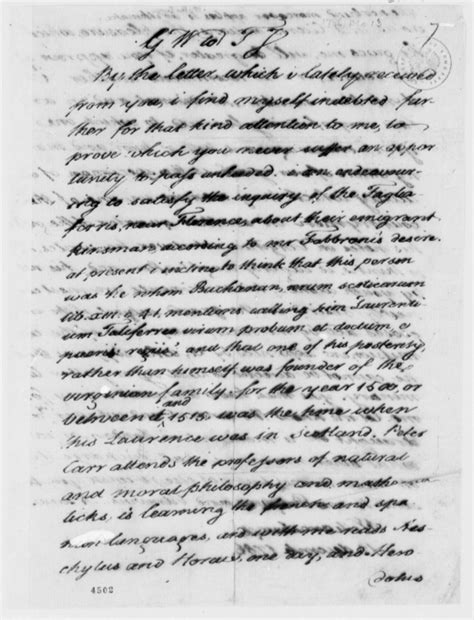 G W to T J
By the letter, which i lately received
from you, i find myself indebted far
ther for that kind attention to me, to
prove which you never suffer an oppor
tunity to pass unheeded. i am endeavour
ing to satisfy the inquiry of the Taglia
ferris, near Florence, about their emigrant
kinsman, according to mr Fabbroni's desire.
at present i incline to think that this person
was he whom Buchanan, rerum scoticarum
lib. XIII. c. 41, mentions, calling him Laurenti
um Taliferrum virum probum et doctum,
and that one of his posterity,
rather than himself, was founder of the
virginian family. for the year 1500, or
between it and 1513. was the time when
this Laurence was in Scotland. Peter
Carr attends the professors of natural
and moral philosophy and mathema
ticks, is learning the french and spa
nish languages, and with me reads Aes
chylus and Horace, one day, and Hero
dotus
4502